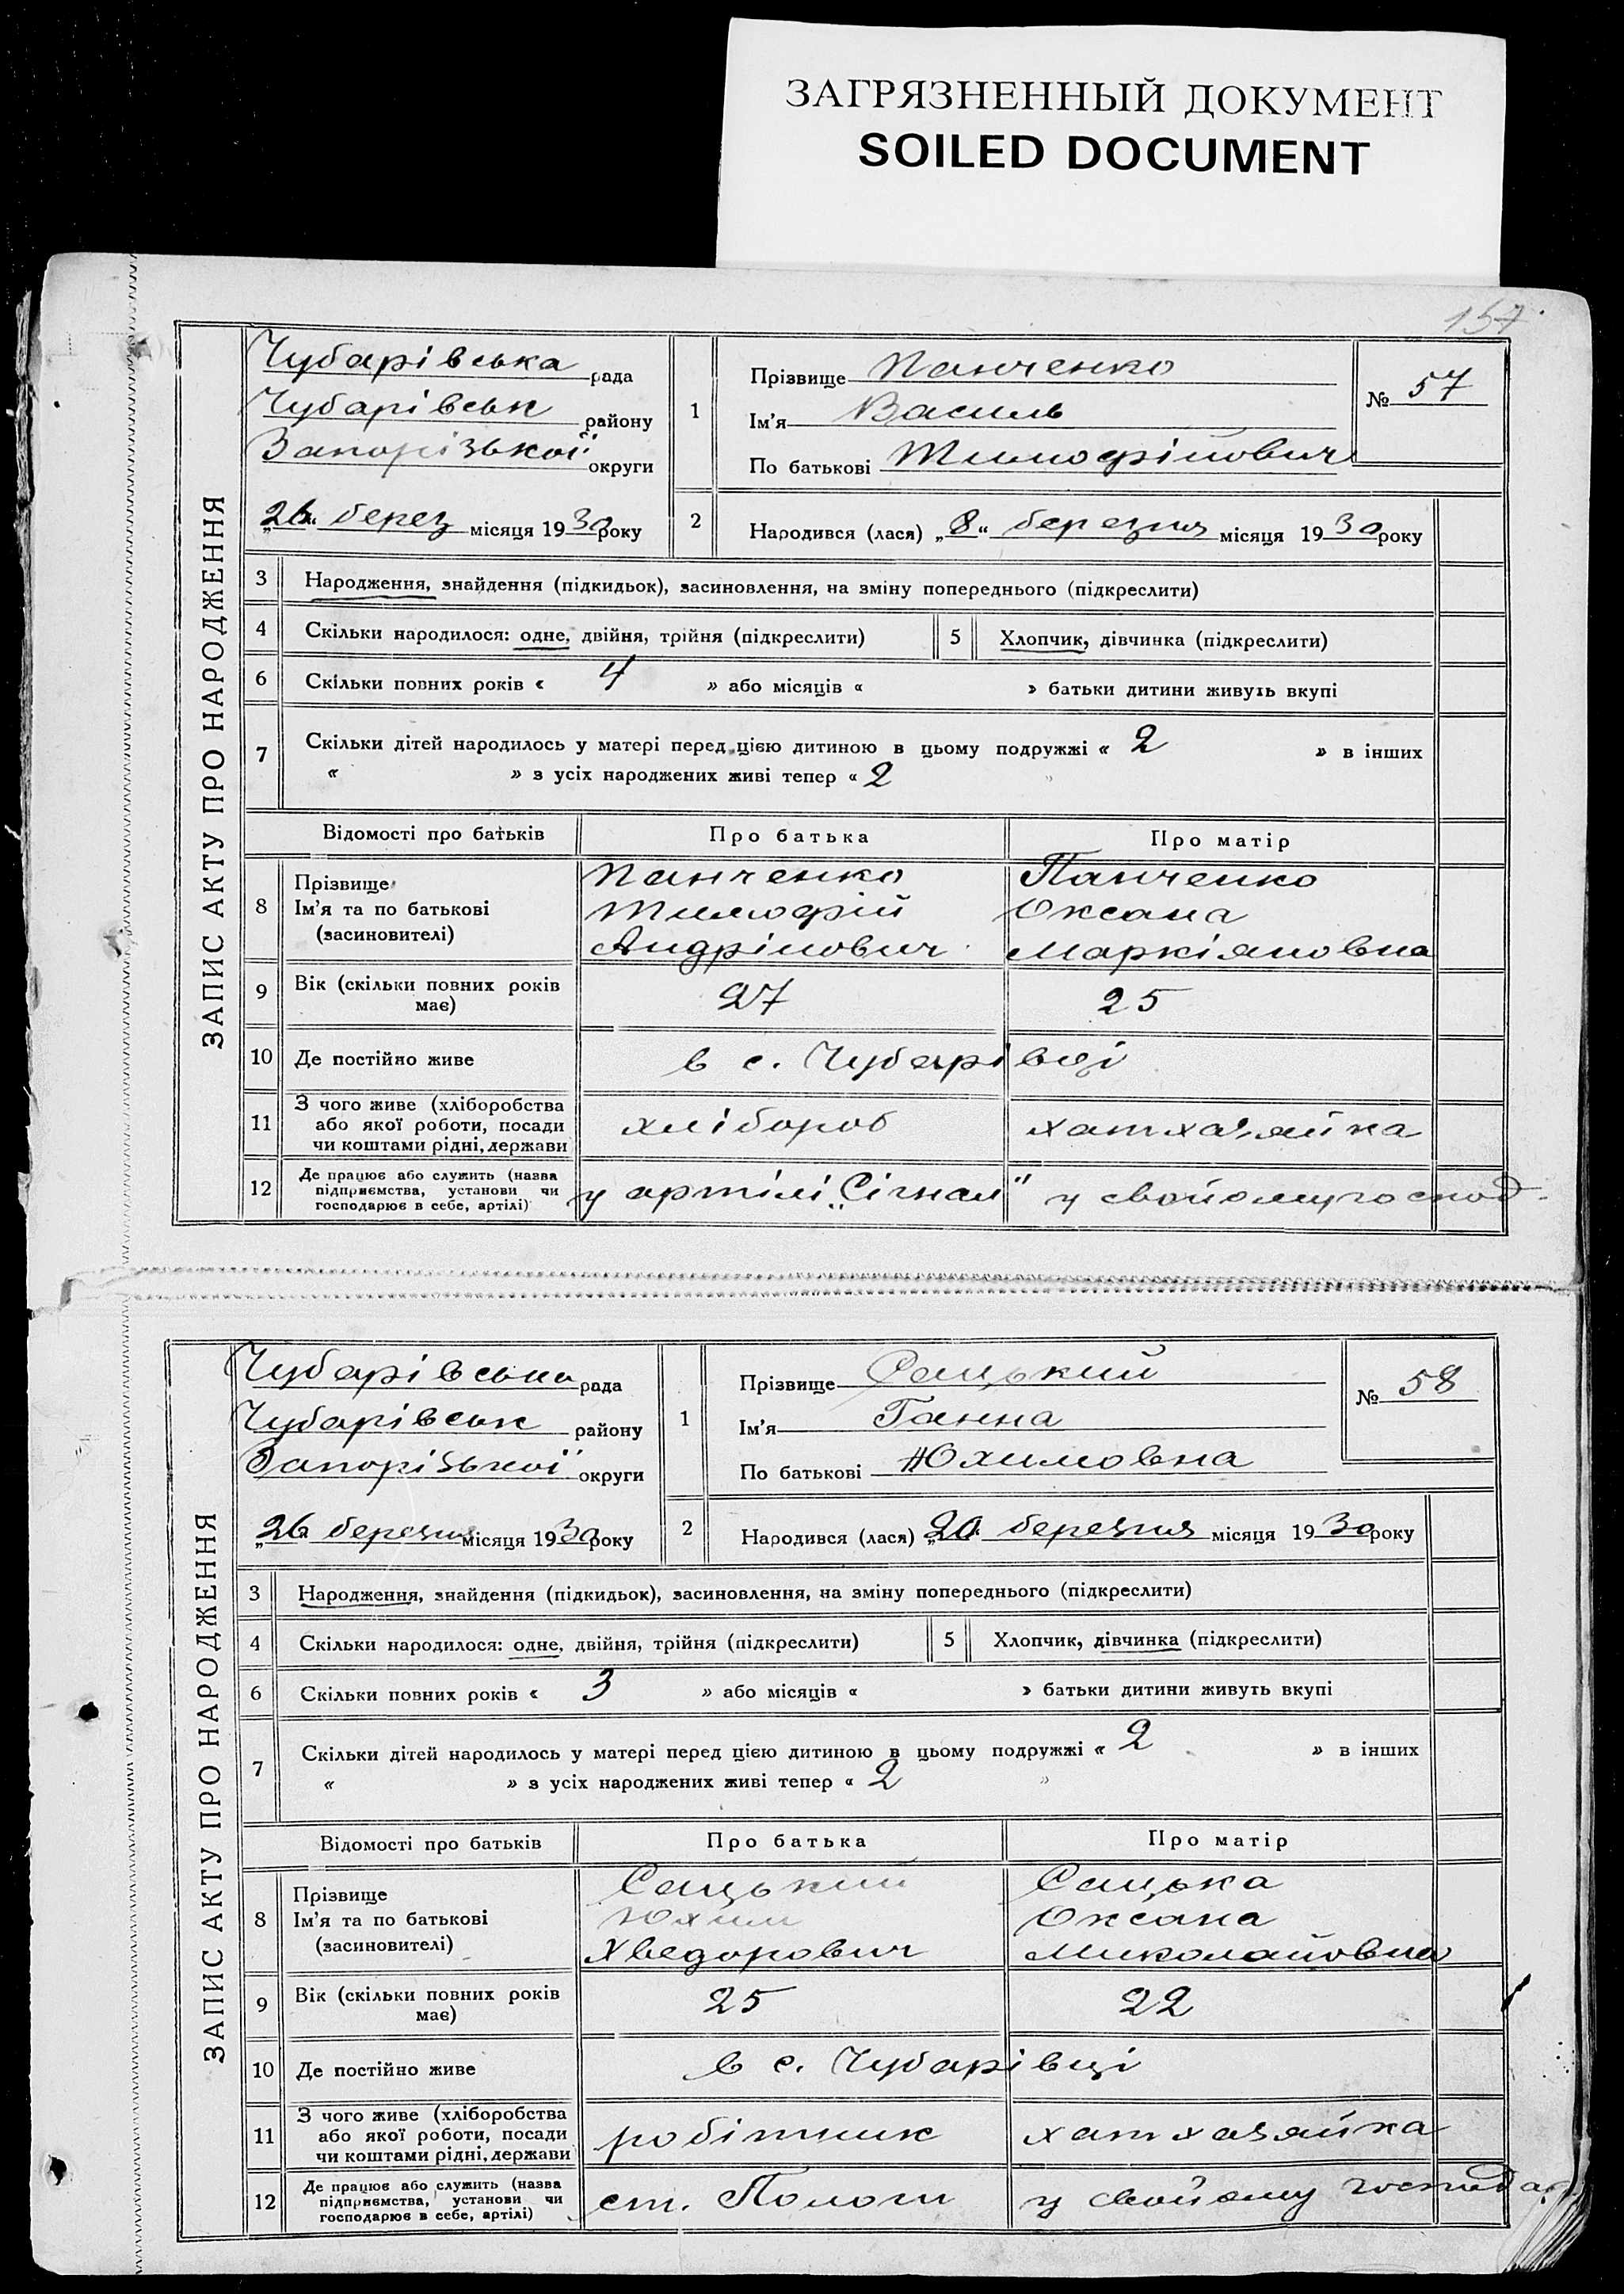 ЗАГРЯЗНЕННЫЙ ДОКУМЕНТ
SOILED DOCUMENT
157
ЗАПИС АКТУ ПРО НАРОДЖЕННЯ
Чубарівська рада
Чубарівськ району
Запорізької округи
„26“ берез місяця 1930 року
1 Прізвище Панченко
Ім’я Василь
По батькові Тимофійович
№ 57
2 Народився (лася) „8“ березня місяця 1930 року
3 Народження, знайдення (підкидьок), засиновлення, на зміну попереднього (підкреслити)
4 Скільки народилося: одне, двійня, трійня (підкреслити) 5 Хлопчик, дівчинка (підкреслити)
6 Скільки повних років « 4 » або місяців « » батьки дитини живуть вкупі
7 Скільки дітей народилось у матері перед цією дитиною в цьому подружжі « 2 » в інших
« » з усіх народжених живі тепер « 2 »
Відомості про батьків Про батька Про матір
8 Прізвище Панченко Панченко
Ім’я та по батькові Тимофій Оксана
(засиновителі) Андрійович Маркіяновна
9 Вік (скільки повних років має) 27 25
10 Де постійно живе в с. Чубарівці
11 З чого живе (хліборобства
або якої роботи, посади хлібороб хатхазяйка
чи коштами рідні, держави
12 Де працює або служить (назва
підприємства, установи чи у артілі „Сігнал“ у свойому господ.
господарює в себе, артілі)
ЗАПИС АКТУ ПРО НАРОДЖЕННЯ
Чубарівська рада
Чубарівськ району
Запорізької округи
„26 березня місяця 1930 року
1 Прізвище Сацький
Ім’я Ганна
По батькові Юхимовна
№ 58
2 Народився (лася) „20“ березня місяця 1930 року
3 Народження, знайдення (підкидьок), засиновлення, на зміну попереднього (підкреслити)
4 Скільки народилося: одне, двійня, трійня (підкреслити) 5 Хлопчик, дівчинка (підкреслити)
6 Скільки повних років « 3 » або місяців « » батьки дитини живуть вкупі
7 Скільки дітей народилось у матері перед цією дитиною в цьому подружжі « 2 » в інших
« » з усіх народжених живі тепер « 2 »
Відомості про батьків Про батька Про матір
8 Прізвище Сацький Сацька
Ім’я та по батькові Юхим Оксана
(засиновителі) Хведорович Миколайовна
9 Вік (скільки повних років має) 25 22
10 Де постійно живе в с. Чубарівці
11 З чого живе (хліборобства
або якої роботи, посади робітник хатхазяйка
чи коштами рідні, держави
12 Де працює або служить (назва
підприємства, установи чи ст. Пологи у свойому господар.
господарює в себе, артілі)